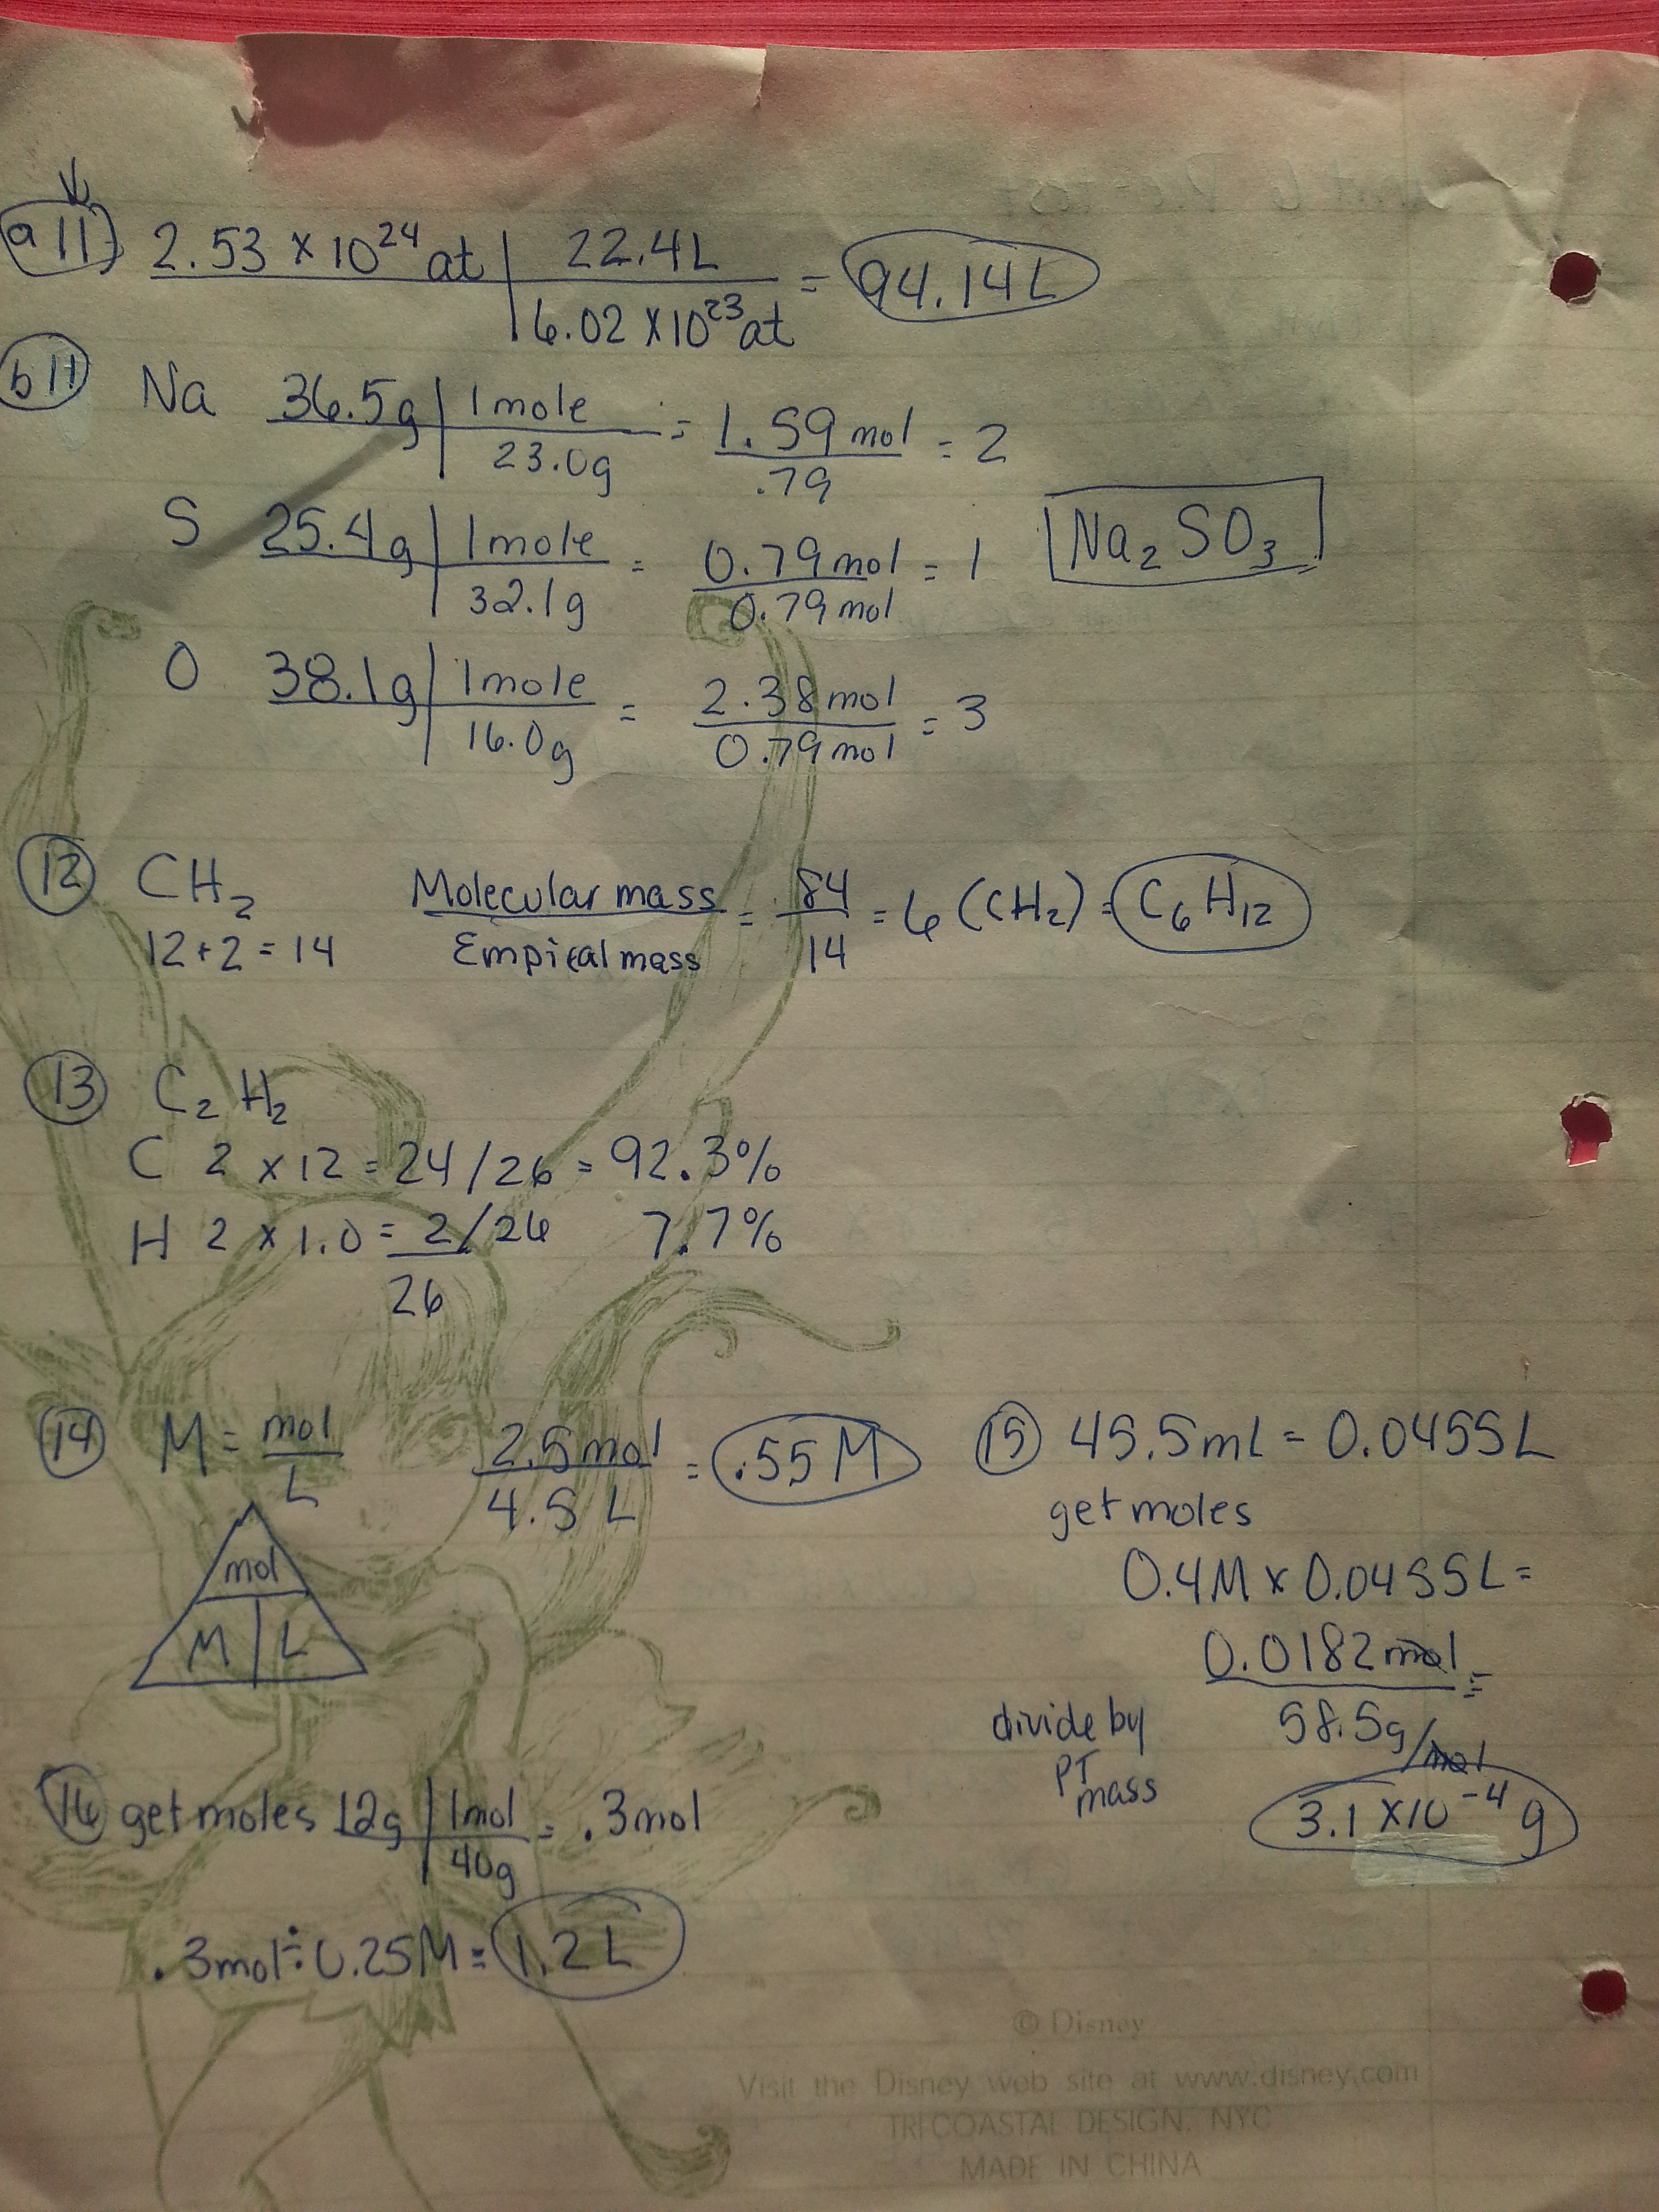 a 11) 2.53 × 10²⁴ at | 22.4L / 6.02 × 10²³ at = 94.14L
b 11 Na 36.5g | 1 mole / 23.0g = 1.59 mol / .79 = 2
S 25.4g | 1 mole / 32.1g = 0.79 mol / 0.79 mol = 1 Na₂SO₃
O 38.1g | 1 mole / 16.0g = 2.38 mol / 0.79 mol = 3
12 CH₂ Molecular mass / Empirical mass = 84 / 14 = 6 (CH₂) = C₆H₁₂
12 + 2 = 14
13 C₂H₂
C 2 × 12 = 24/26 = 92.3%
H 2 × 1.0 = 2/26 7.7%
26
14 M = mol / L 2.5 mol / 4.5 L = .55 M
mol
M | L
15 45.5mL = 0.0455L
get moles
0.4M × 0.0455L =
0.0182 mol / 58.5g/mol =
divide by
PT
mass
3.1 × 10⁻⁴ g
16 get moles 12g | 1mol / 40g = .3mol
.3mol ÷ 0.25M = 1.2L
© Disney
Visit the Disney web site at www.disney.com
TRI COASTAL DESIGN, NYC
MADE IN CHINA